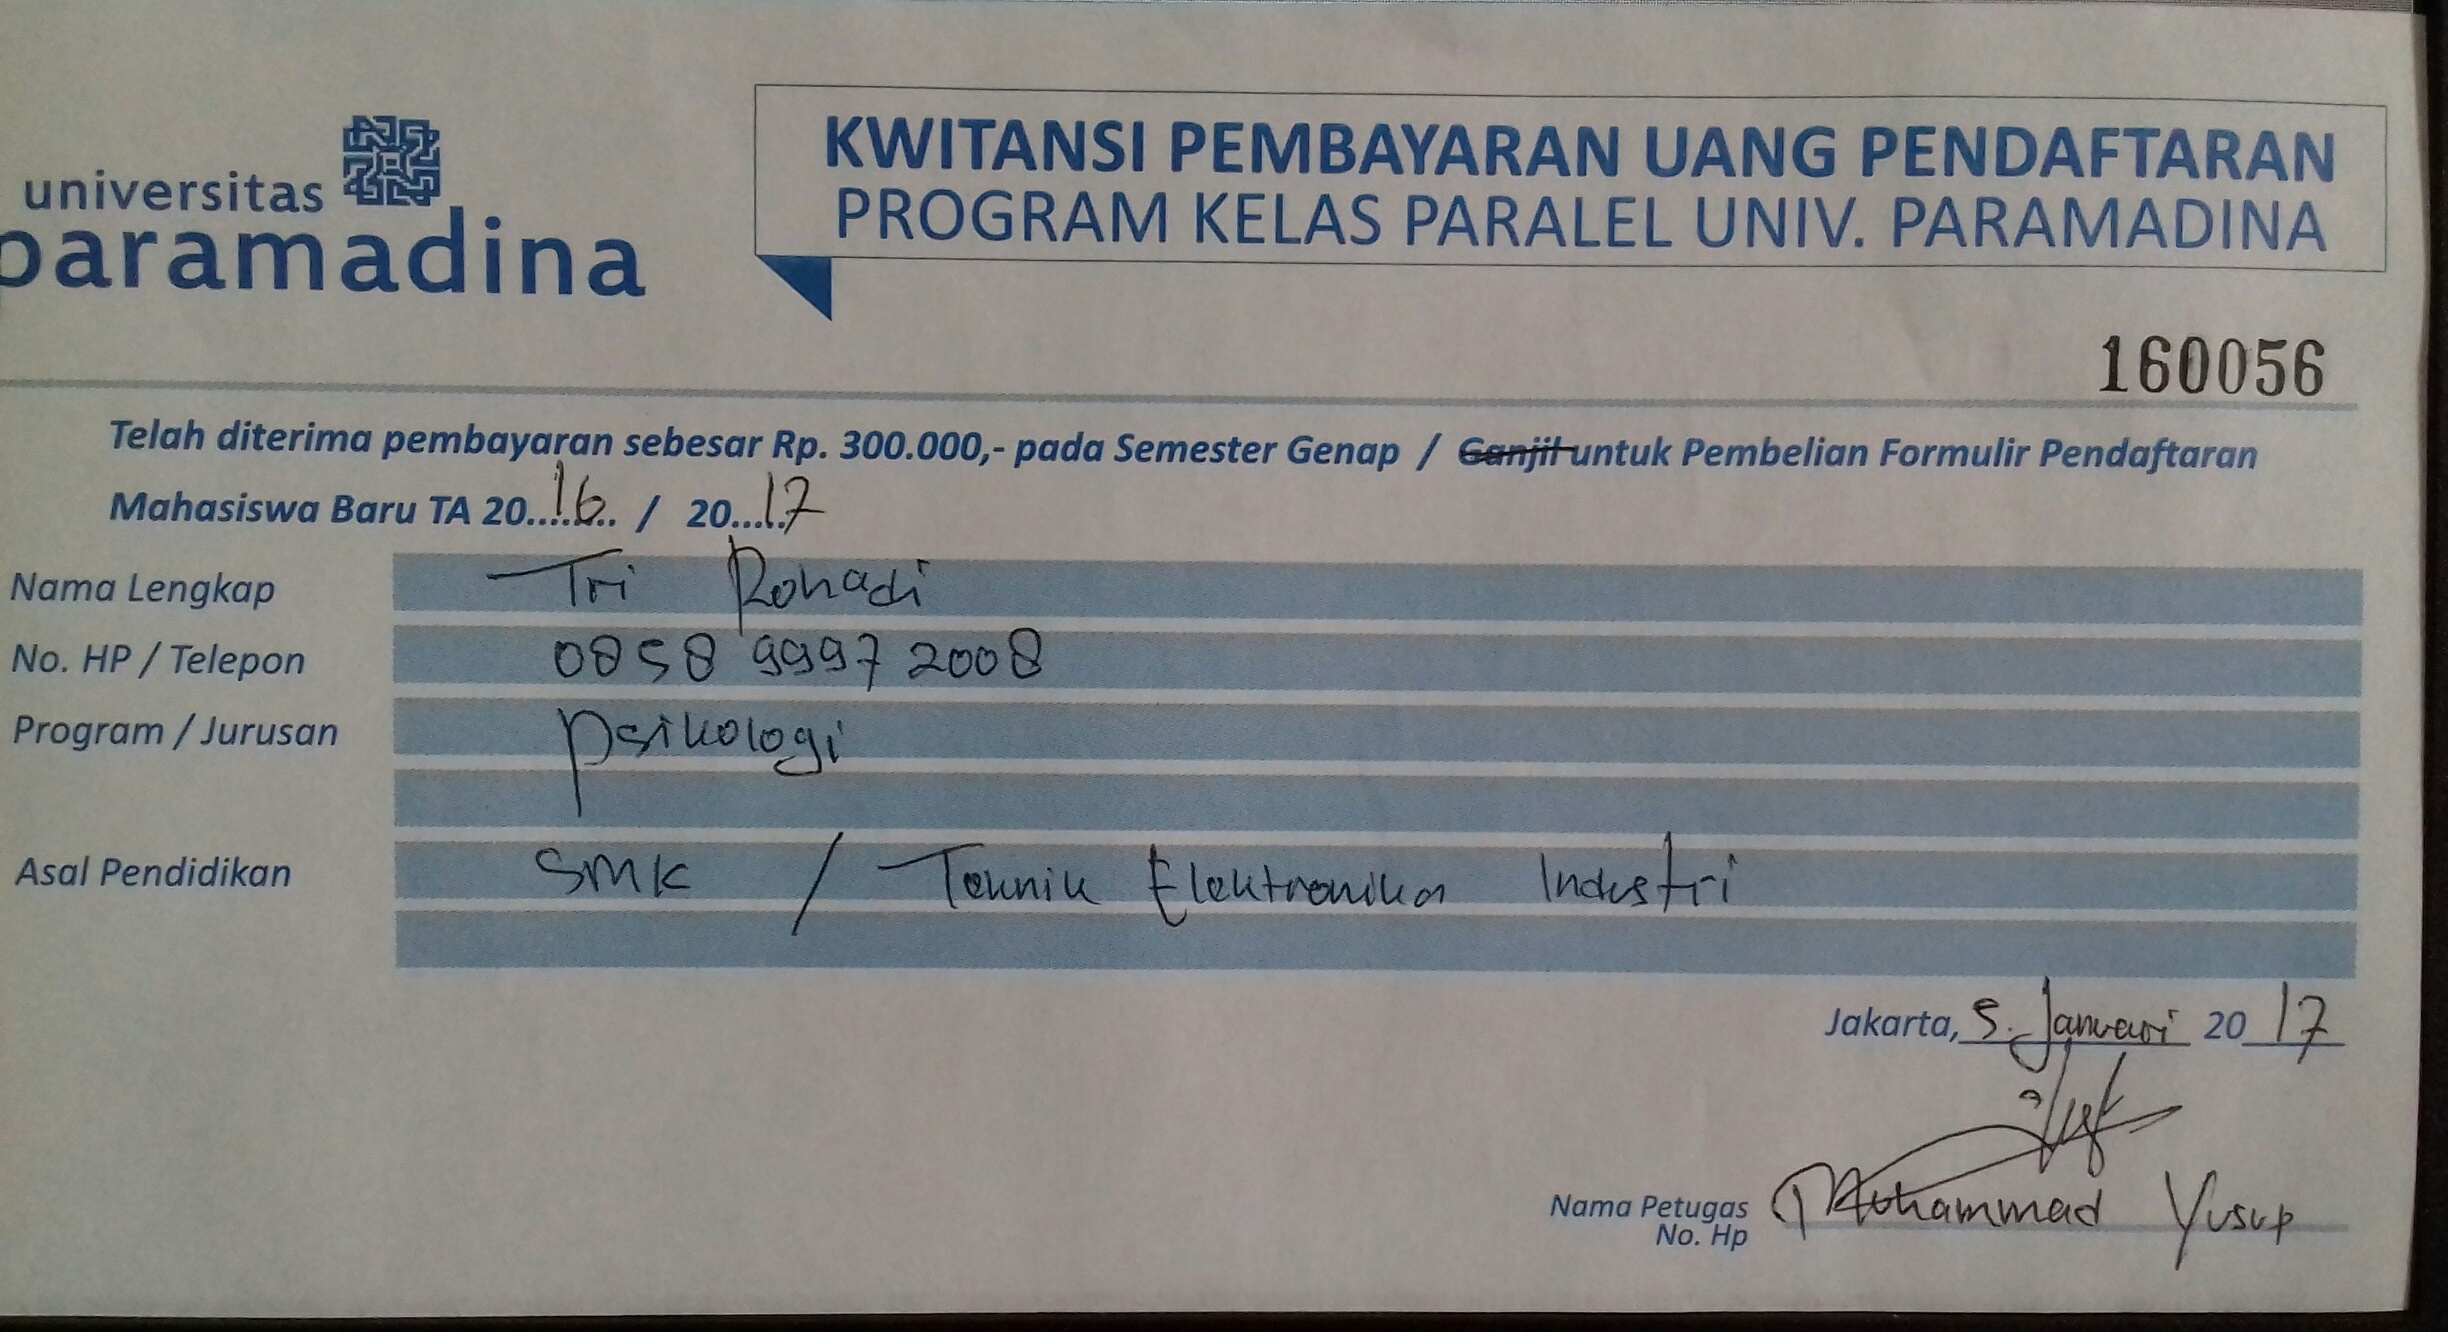 universitas
paramadina
KWITANSI PEMBAYARAN UANG PENDAFTARAN
PROGRAM KELAS PARALEL UNIV. PARAMADINA
160056
Telah diterima pembayaran sebesar Rp. 300.000,- pada Semester Genap / Ganjil untuk Pembelian Formulir Pendaftaran
Mahasiswa Baru TA 20...16... / 20...17
Nama Lengkap Tri Rohadi
No. HP / Telepon 0858 9997 2008
Program / Jurusan Psikologi
Asal Pendidikan SMK / Teknik Elektronika Industri
Jakarta, 5 Januari 20 17
Nama Petugas Muhammad Yusup
No. Hp